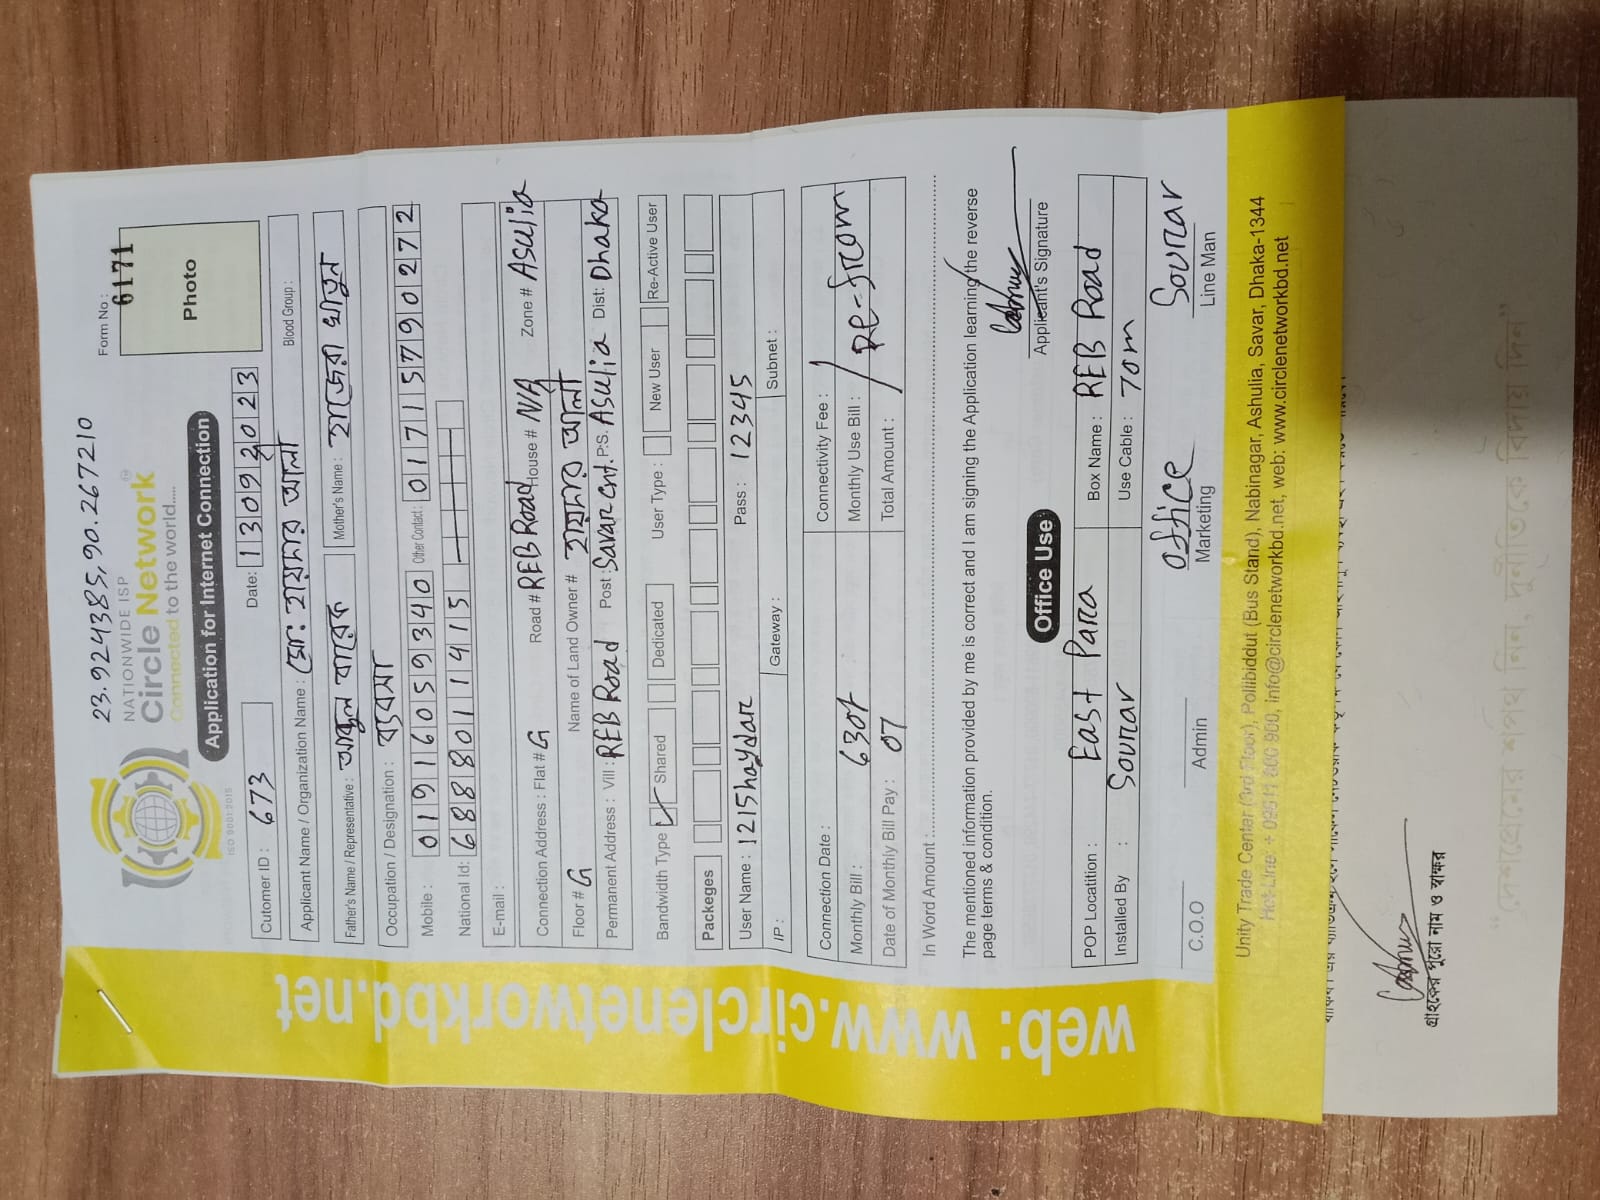 23.924385,90.267210
Form No :
6171
NATIONWIDE ISP
Circle Network
Connected to the world.....
ISO 9001:2015
Photo
Application for Internet Connection
Cutomer ID : 673 Date: 13092023
Applicant Name / Organization Name : মো: হায়দার আলী Blood Group :
Father's Name / Representative : আব্দুল বারেক Mother's Name : হাজেরা খাতুন
Occupation / Designation : ব্যবসা
Mobile : 01916059340 Other Contact : 01715790272
National Id: 6888011415
E-mail :
Connection Address : Flat # G Road # REB Road House # N/A Zone # Asulia
Floor # G Name of Land Owner # হায়দার আলী
Permanent Address : Vill : REB Road Post : Savar cnt. P.S. Asulia Dist: Dhaka
Bandwidth Type : Shared Dedicated User Type : New User Re-Active User
Packeges
User Name : 1215haydar Pass : 12345
IP : Gateway : Subnet :
Connection Date : Connectivity Fee :
Monthly Bill : 630৳ Monthly Use Bill : Re-from
Date of Monthly Bill Pay : 07 Total Amount :
In Word Amount :
The mentioned information provided by me is correct and I am signing the Application learning the reverse
page terms & condition.
Applicant's Signature
Office Use
POP Locatition : East Para Box Name : REB Road
Installed By : Sourar Use Cable : 70m
office Sourar
C.O.O Admin Marketing Line Man
Unity Trade Center (3rd Floor), Pollibiddut (Bus Stand), Nabinagar, Ashulia, Savar, Dhaka-1344
info@circlenetworkbd.net, web: www.circlenetworkbd.net
web: www.circlenetworkbd.net
গ্রাহকের পুরো নাম ও স্বাক্ষর
"দেশপ্রেমের শপথ নিন, দুর্নীতিকে বিদায় দিন"